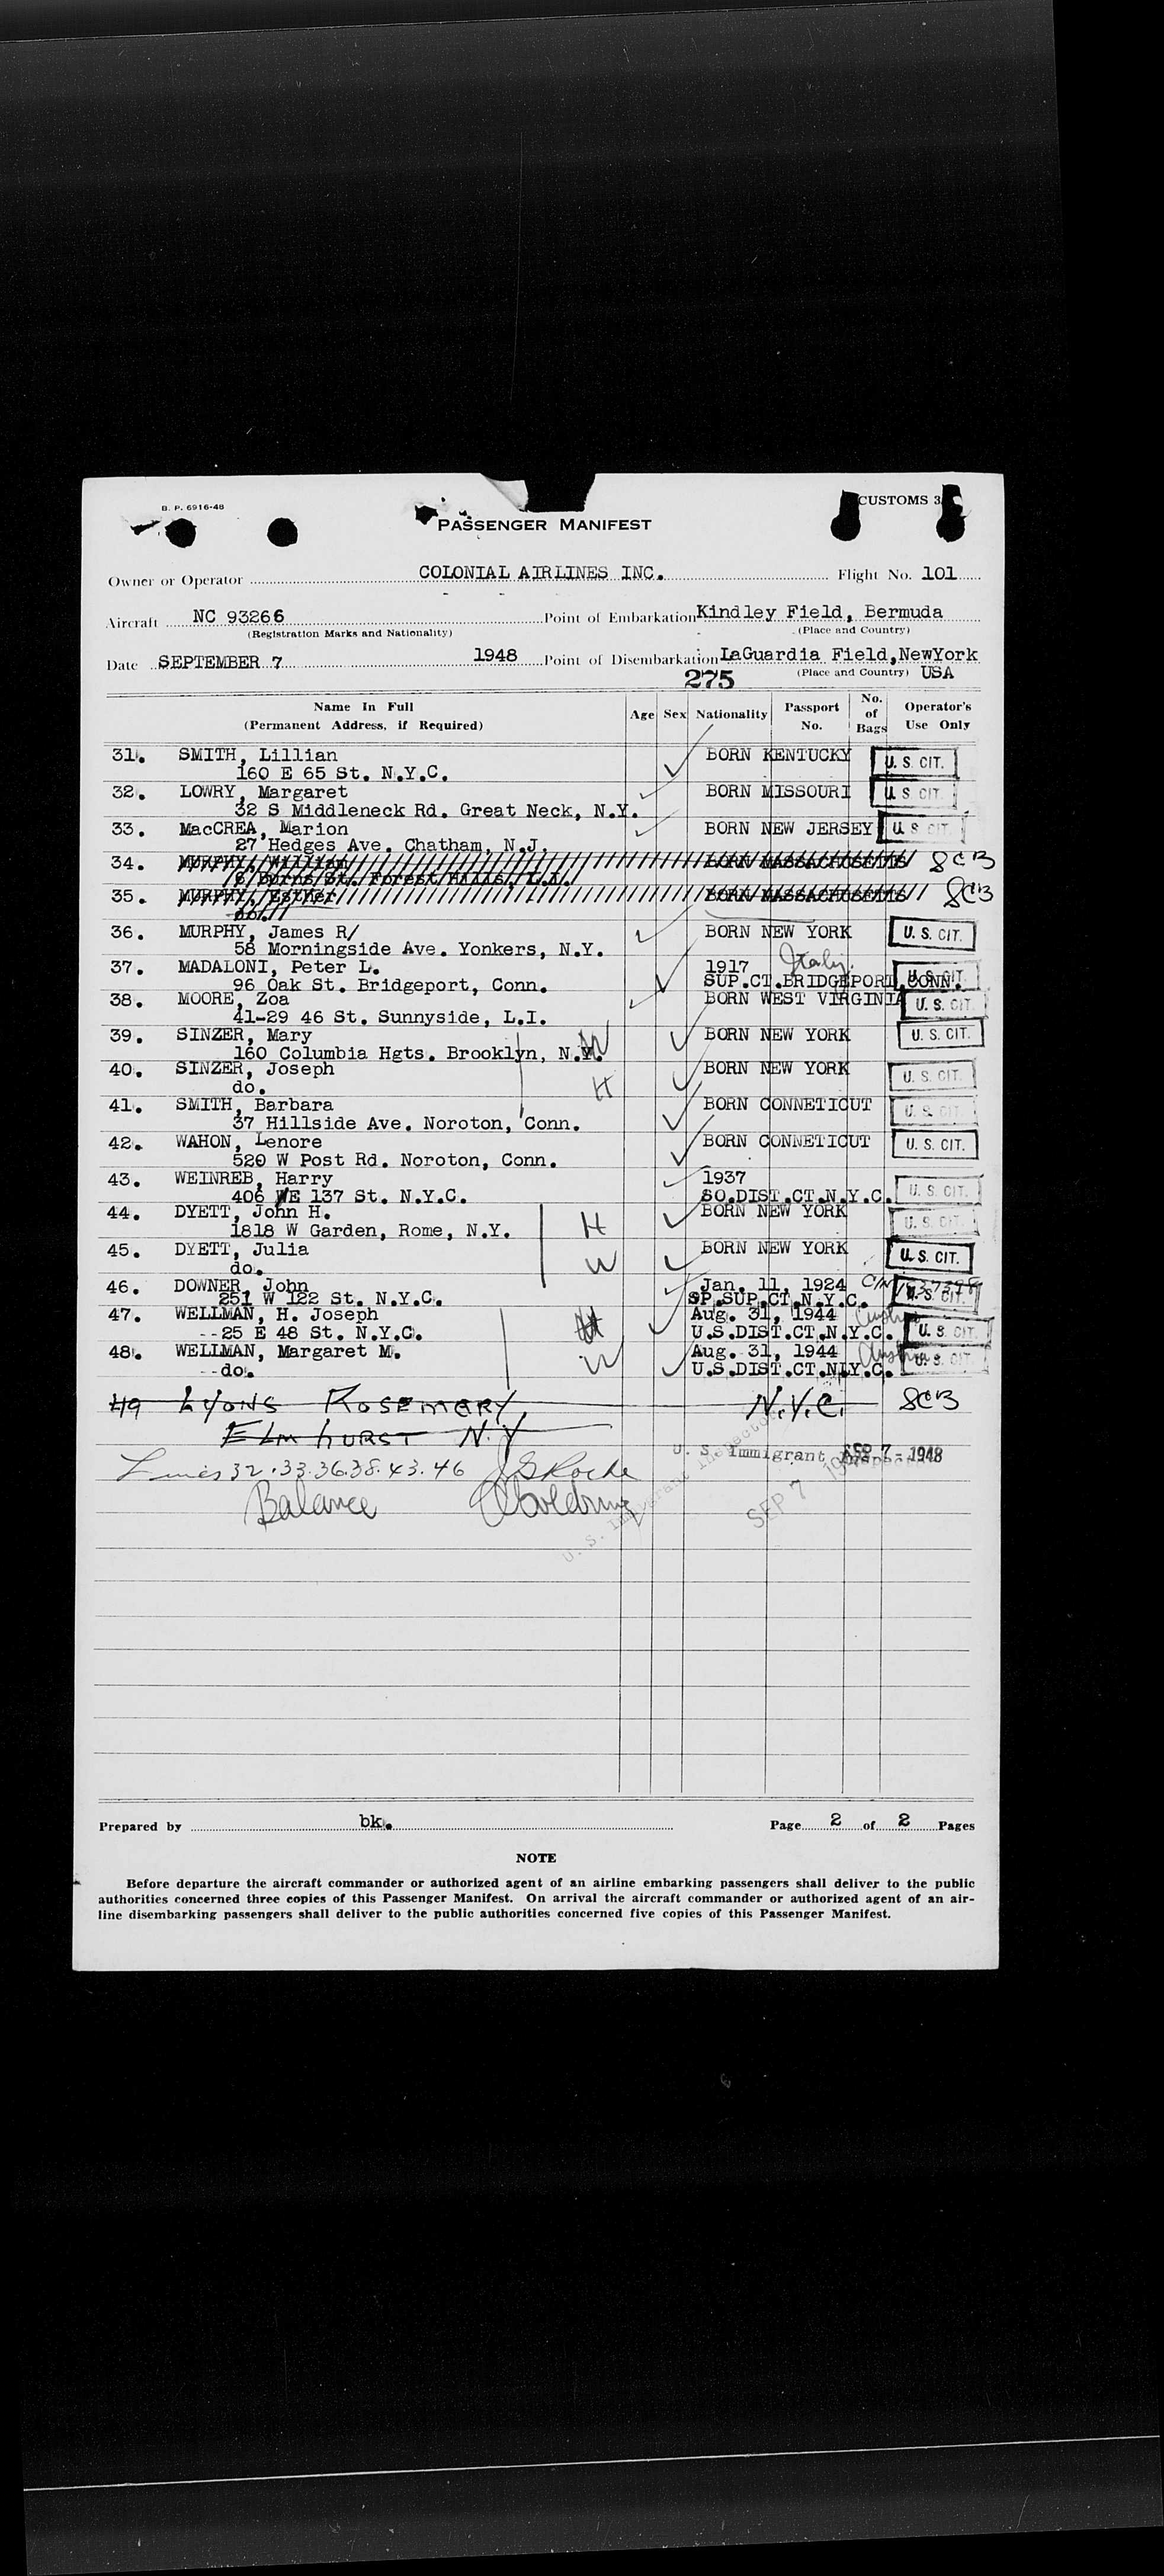 B. P. 6916-48
CUSTOMS 3
PASSENGER MANIFEST
Owner or Operator COLONIAL AIRLINES INC. Flight No. 101
Aircraft NC 93266 Point of Embarkation Kindley Field, Bermuda
(Registration Marks and Nationality) (Place and Country)
Date SEPTEMBER 7 1948 Point of Disembarkation LaGuardia Field, NewYork
275 (Place and Country) USA
Name In Full (Permanent Address, if Required) Age Sex Nationality Passport No. No. of Bags Operator's Use Only
31. SMITH, Lillian BORN KENTUCKY U. S. CIT.
160 E 65 St. N.Y.C.
32. LOWRY, Margaret BORN MISSOURI U. S. CIT.
32 S Middleneck Rd. Great Neck, N.Y.
33. MacCREA, Marion BORN NEW JERSEY U. S. CIT.
27 Hedges Ave. Chatham, N.J.
34. MURPHY, William BORN MASSACHUSETTS SCB
6 Burns St. Forest Hills, L.I.
35. MURPHY, Esther BORN MASSACHUSETTS SCB
do.
36. MURPHY, James R/ BORN NEW YORK U. S. CIT.
58 Morningside Ave. Yonkers, N.Y.
37. MADALONI, Peter L. 1917 Italy. U. S. CIT.
96 Oak St. Bridgeport, Conn. SUP.CT.BRIDGEPORT,CONN.
38. MOORE, Zoa BORN WEST VIRGINIA U. S. CIT.
41-29 46 St. Sunnyside, L.I.
39. SINZER, Mary W BORN NEW YORK U. S. CIT.
160 Columbia Hgts. Brooklyn, N.Y.
40. SINZER, Joseph H BORN NEW YORK U. S. CIT.
do.
41. SMITH, Barbara BORN CONNETICUT U. S. CIT.
37 Hillside Ave. Noroton, Conn.
42. WAHON, Lenore BORN CONNETICUT U. S. CIT.
520 W Post Rd. Noroton, Conn.
43. WEINREB, Harry 1937 U. S. CIT.
406 WE 137 St. N.Y.C. SO.DIST.CT.N.Y.C.
44. DYETT, John H. H BORN NEW YORK U. S. CIT.
1818 W Garden, Rome, N.Y.
45. DYETT, Julia W BORN NEW YORK U. S. CIT.
do.
46. DOWNER, John Jan. 11, 1924 U. S. CIT.
251 W 122 St. N.Y.C. SP.SUP.CT.N.Y.C.
47. WELLMAN, H. Joseph H Aug. 31, 1944 Austria U. S. CIT.
--25 E 48 St. N.Y.C. U.S.DIST.CT.N.Y.C.
48. WELLMAN, Margaret M. W Aug. 31, 1944 Austria U. S. CIT.
--do. U.S.DIST.CT.NLY.C.
49 LYONS ROSEMARY N.Y.C. SCB
ELMHURST N.Y
U. S. Immigrant Inspector SEP 7 - 1948
Lines 32.33.36.38.43.46
Balance
U. S. Immigrant Inspector SEP 7
Prepared by bk. Page 2 of 2 Pages
NOTE
Before departure the aircraft commander or authorized agent of an airline embarking passengers shall deliver to the public
authorities concerned three copies of this Passenger Manifest. On arrival the aircraft commander or authorized agent of an air-
line disembarking passengers shall deliver to the public authorities concerned five copies of this Passenger Manifest.